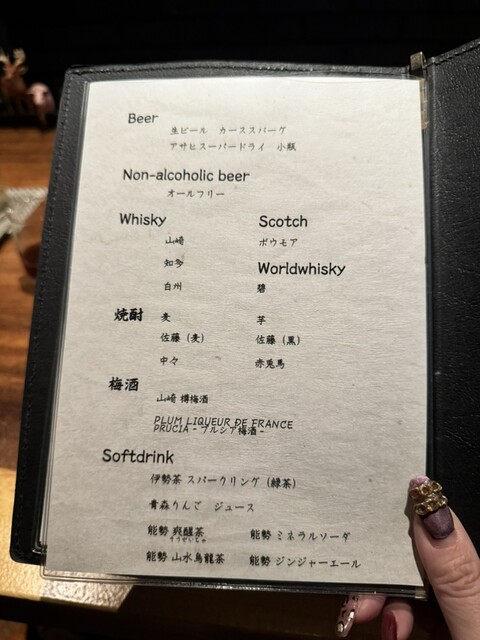 Beer
生ビール カーススバーグ
アサヒスーパードライ 小瓶
Non-alcoholic beer
オールフリー
Whisky
山崎
知多
白州
Scotch
ボウモア
Worldwhisky
碧
焼酎 麦 芋
佐藤（麦） 佐藤（黒）
中々 赤兎馬
梅酒
山崎 樽梅酒
PLUM LIQUEUR DE FRANCE
PRUCIA - プルシア梅酒 -
Softdrink
伊勢茶 スパークリング（緑茶）
青森りんご ジュース
能勢 爽醒茶 能勢 ミネラルソーダ
そうせいちゃ
能勢 山水烏龍茶 能勢 ジンジャーエール